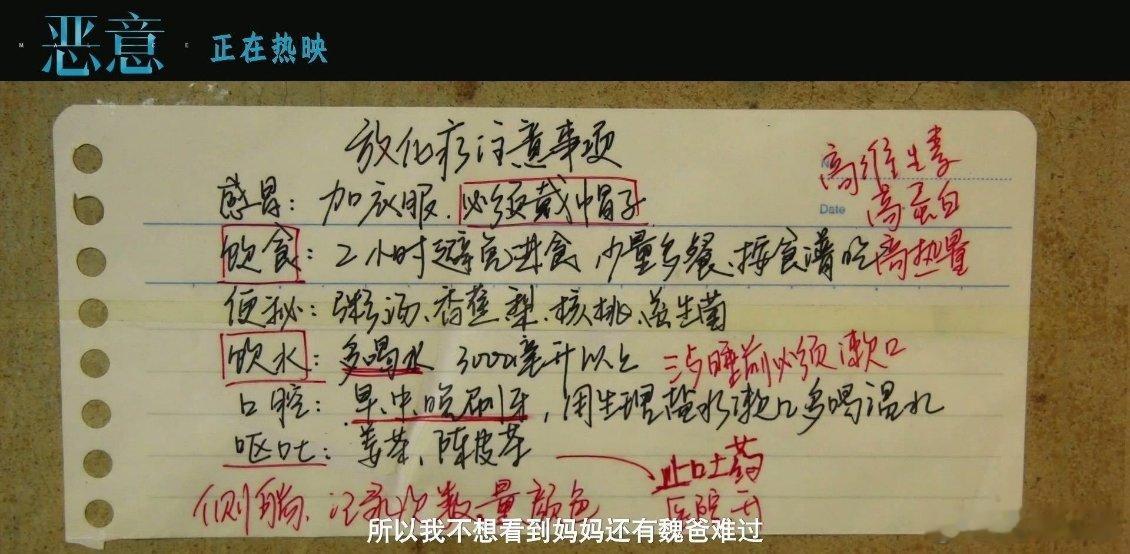 恶意
正在热映
放化疗注意事项
高维生素
感冒：加衣服．必须戴帽子
Date
高蛋白
饮食：2小时避免进食，少量多餐、按食谱吃高热量
便秘：粥汤、香蕉梨、核桃、益生菌
饮水：多喝水 3000毫升以上 三餐睡前必须漱口
口腔：早、中、晚刷牙，用生理盐水漱口多喝温水
呕吐：姜茶、陈皮茶
止吐药
医院开
记录次数量颜色
所以我不想看到妈妈还有魏爸难过